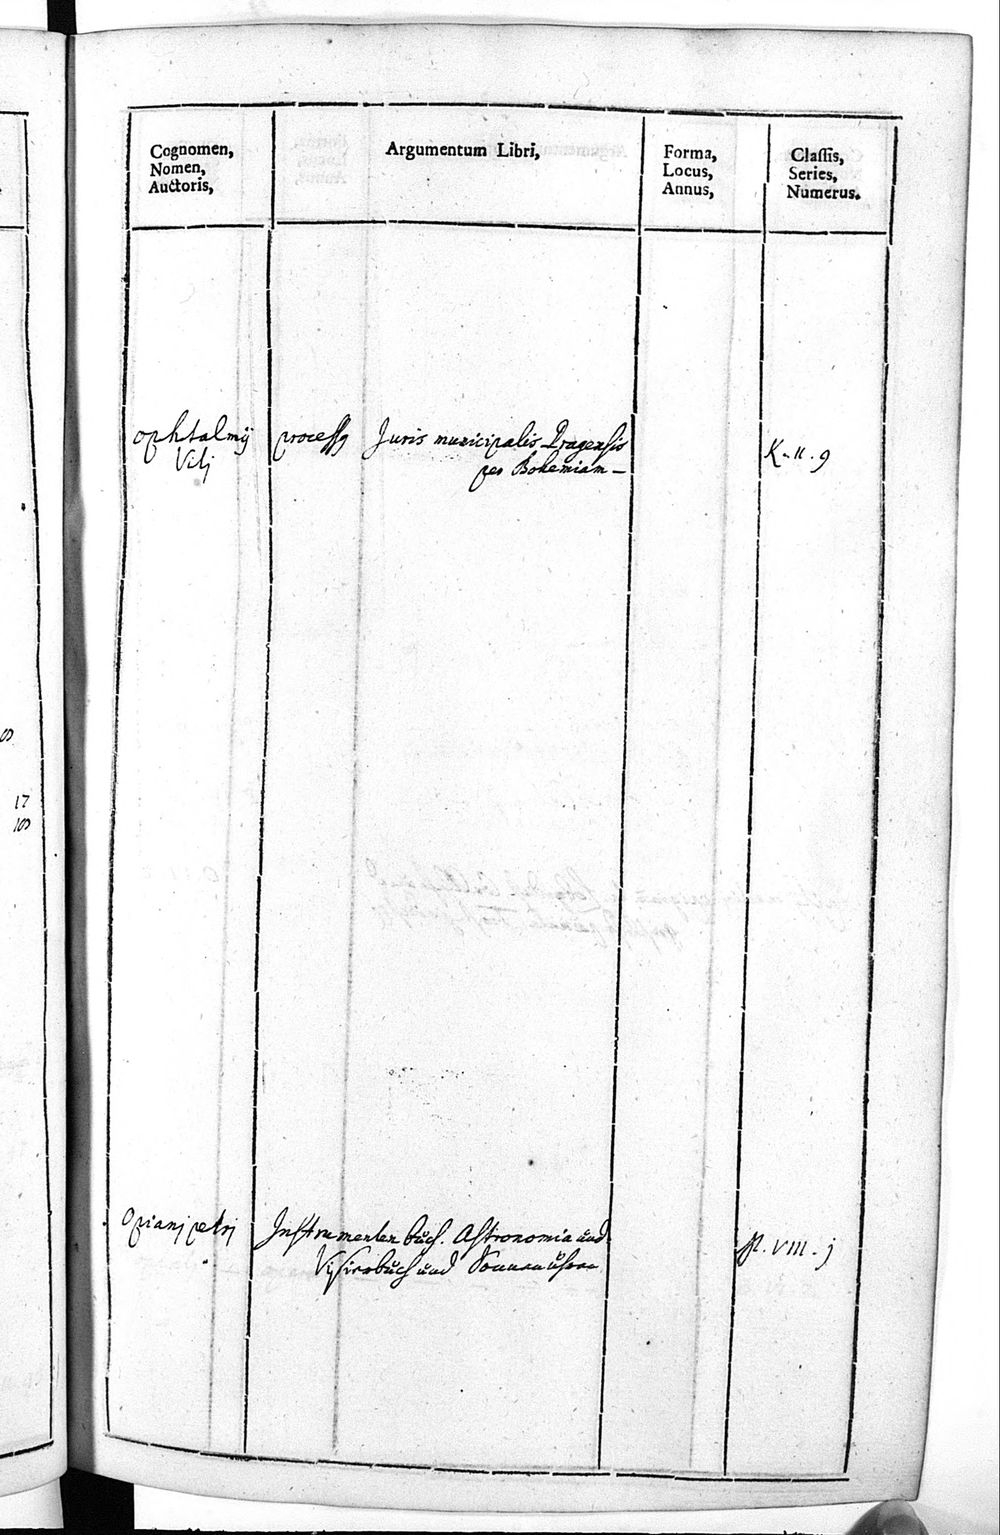 Cognomen,
Nomen,
Auctoris,
Argumentum Libri,
Forma,
Locus,
Annus,
Classis,
Series,
Numerus.
ophtalmij
Viti
processq Juris municipalis Pragensis
per Bohemiam
K. II. 9
17
18
Opianj petrj
Instrumenten buch. Astronomia und
Visirbuch und Sonnen uhren
VIII. j